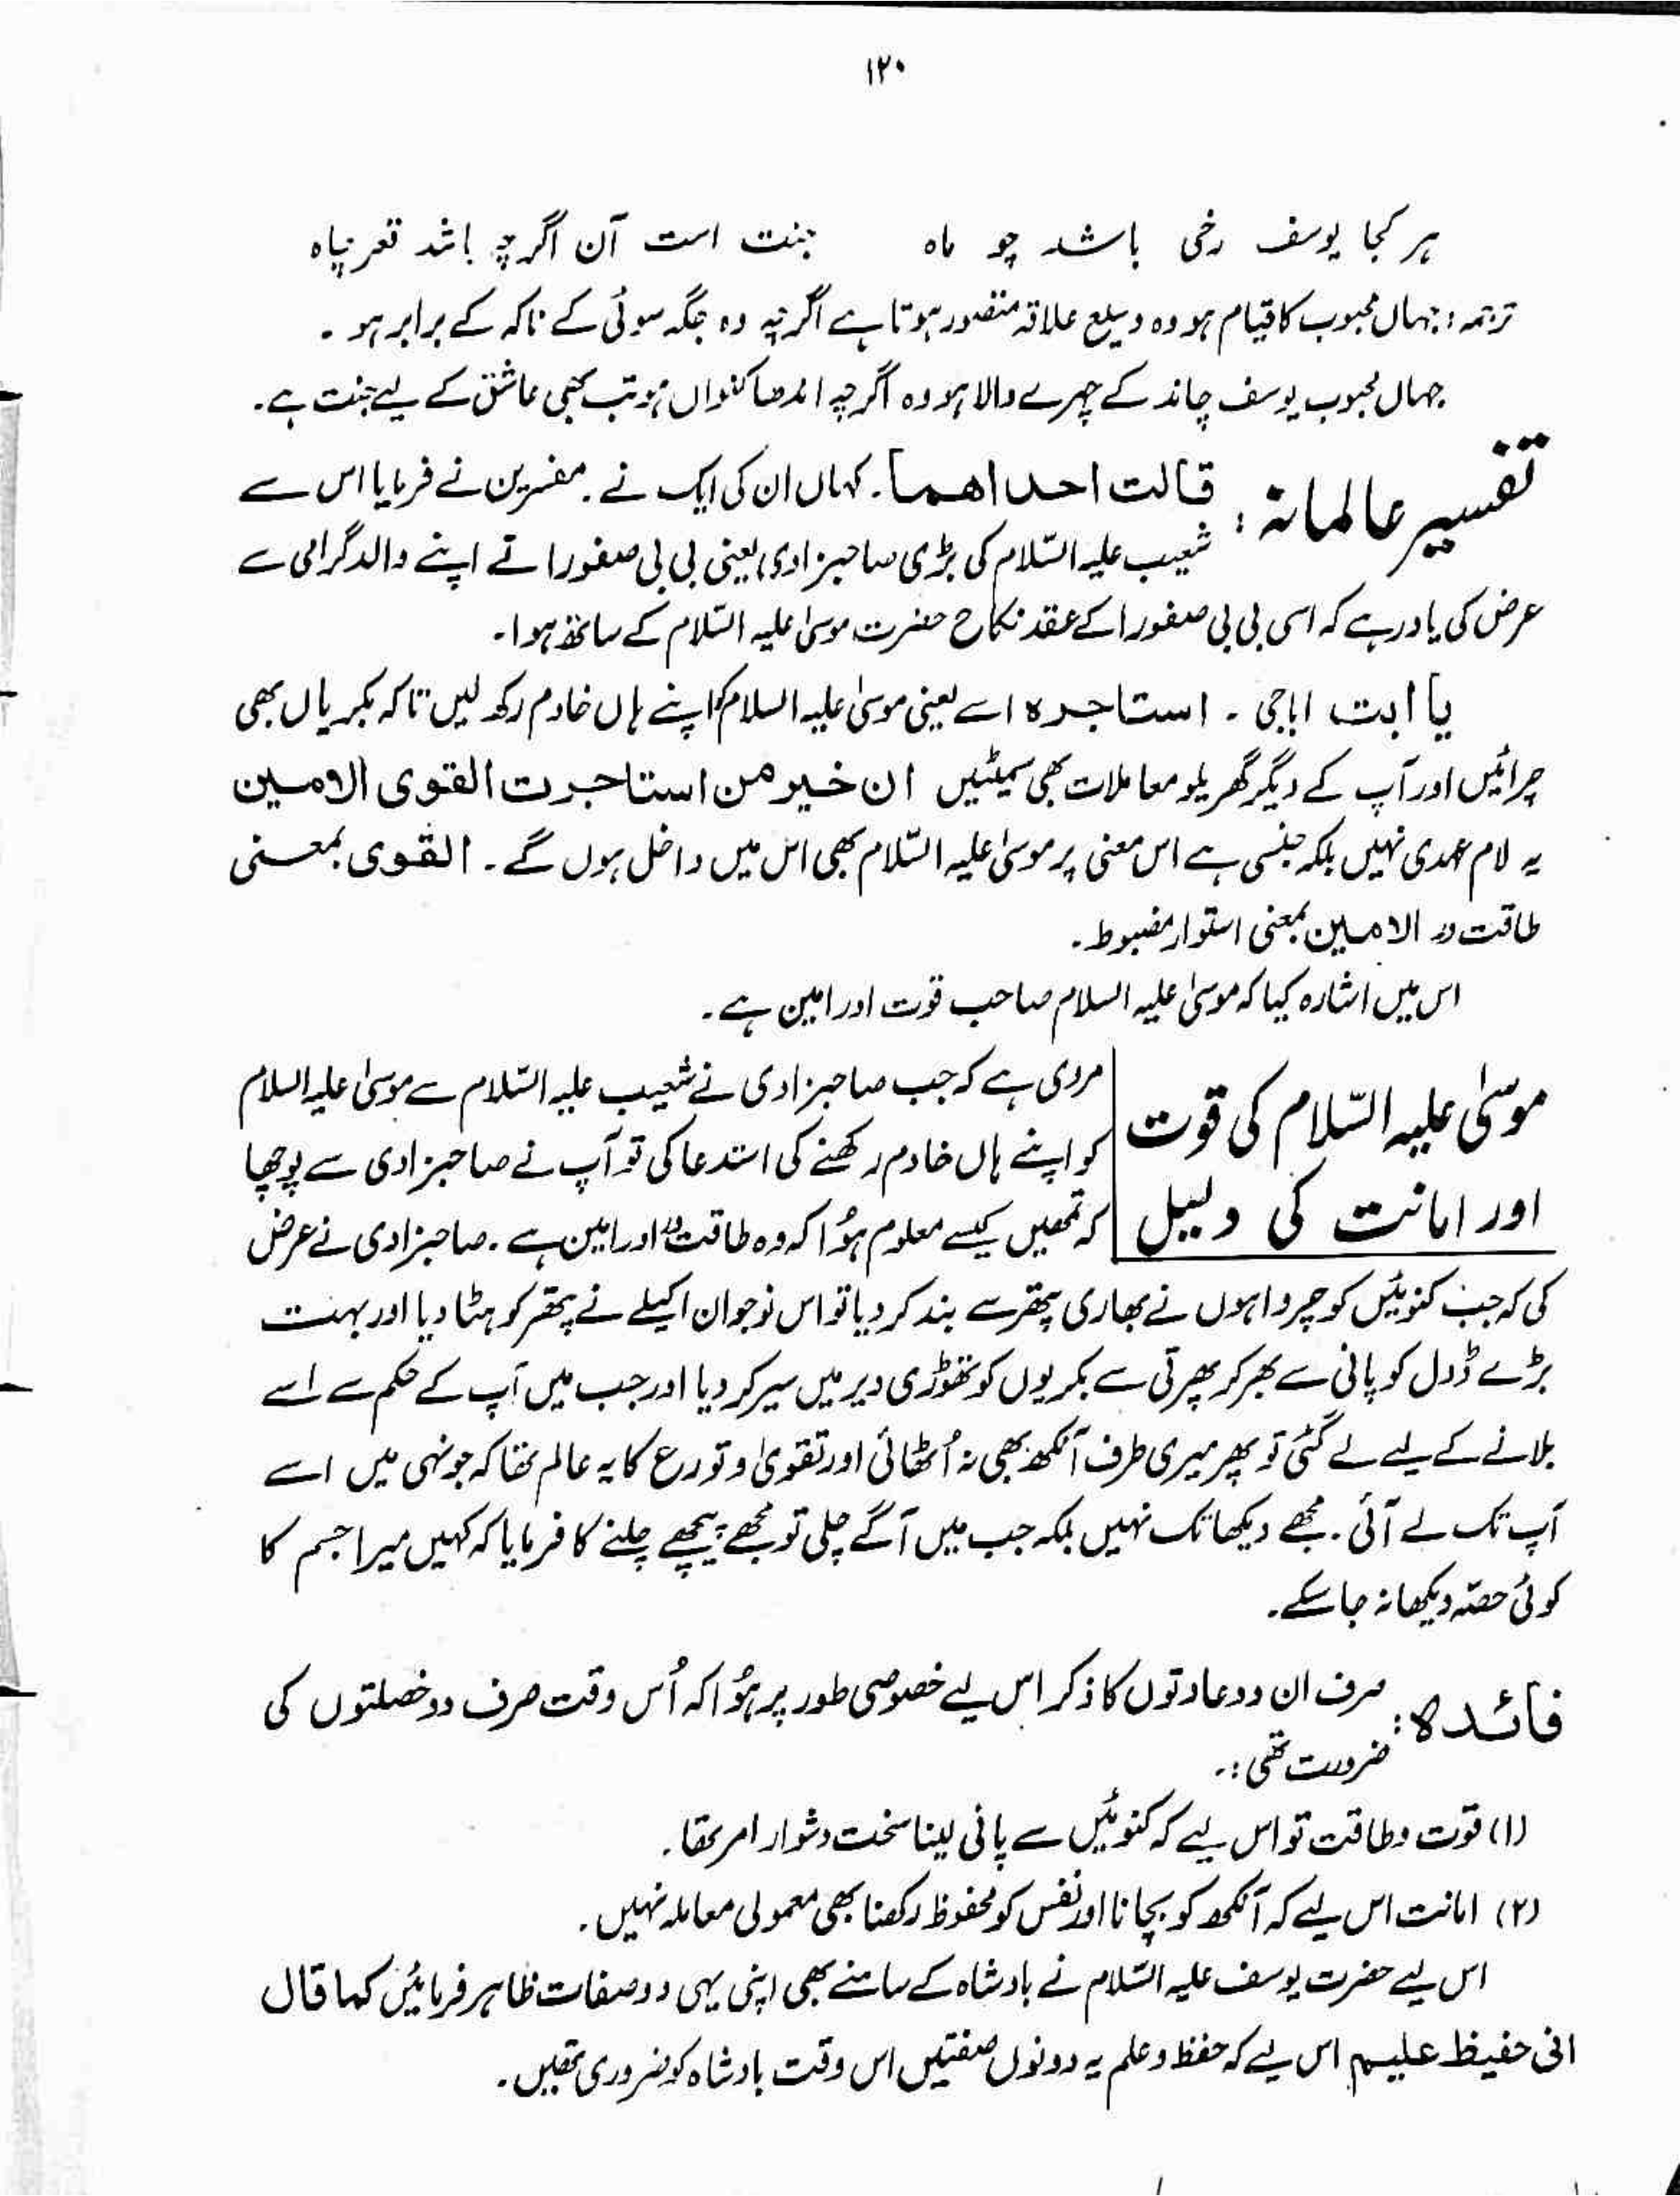 ۱۲۰
ہر کجا یوسف رخی باشد چو ماہ جنت است آن اگرچہ باشد قعر چاہ
ترجمہ: جہاں محبوب کا قیام ہو وہ وسیع علاقہ متصور ہوتا ہے اگرچہ وہ جگہ سوئی کے ناکہ کے برابر ہو۔
جہاں محبوب یوسف چاند کے چہرے والا ہو وہ اگرچہ اندھا کنواں ہو تب بھی عاشق کے لیے جنت ہے۔
تفسیر عالمانہ: قالت احداھما۔ کہاں ان کی ایک نے۔ مفسرین نے فرمایا اس سے
شعیب علیہ السّلام کی بڑی صاحبزادی یعنی بی بی صفورا نے اپنے والد گرامی سے
عرض کی یاد رہے کہ اسی بی بی صفورا کے عقد نکاح حضرت موسیٰ علیہ السّلام کے ساتھ ہوا۔
یا ابت اباجی۔ استاجرہ اسے یعنی موسیٰ علیہ السلام کو اپنے ہاں خادم رکھ لیں تاکہ بکریاں بھی
چرائیں اور آپ کے دیگر گھریلو معاملات بھی سمیٹیں ان خیر من استاجرت القوی الامین
یہ لام عہدی نہیں بلکہ جنسی ہے اس معنی پر موسیٰ علیہ السّلام بھی اس میں داخل ہوں گے۔ القوی بمعنی
طاقت ور الامین بمعنی استوار مضبوط۔
اس میں اشارہ کیا کہ موسیٰ علیہ السلام صاحب قوت اور امین ہے۔
موسیٰ علیہ السّلام کی قوت
اور امانت کی دلیل
مروی ہے کہ جب صاحبزادی نے شعیب علیہ السّلام سے موسیٰ علیہ السلام
کو اپنے ہاں خادم رکھنے کی استدعا کی تو آپ نے صاحبزادی سے پوچھا
کہ تمھیں کیسے معلوم ہُوا کہ وہ طاقت ور اور امین ہے۔ صاحبزادی نے عرض
کی کہ جب کنوئیں کو چرواہوں نے بھاری پتھر سے بند کر دیا تو اس نوجوان اکیلے نے پتھر کو ہٹا دیا اور بہت
بڑے ڈول کو پانی سے بھر کر پھرتی سے بکریوں کو تھوڑی دیر میں سیر کر دیا اور جب میں آپ کے حکم سے اسے
بلانے کے لیے لے گئی تو پھر میری طرف آنکھ بھی نہ اُٹھائی اور تقویٰ و تورع کا یہ عالم تھا کہ جونہی میں اسے
آپ تک لے آئی۔ مجھے دیکھا تک نہیں بلکہ جب میں آگے چلی تو مجھے پیچھے چلنے کا فرمایا کہ کہیں میرا جسم کا
کوئی حصّہ دیکھا نہ جا سکے۔
فائدہ: صرف ان دو عادتوں کا ذکر اس لیے خصوصی طور پر ہُوا کہ اُس وقت صرف دو خصلتوں کی
ضرورت تھی:۔
(۱) قوت و طاقت تو اس لیے کہ کنوئیں سے پانی لینا سخت دشوار امر تھا۔
(۲) امانت اس لیے کہ آنکھ کو بچانا اور نفس کو محفوظ رکھنا بھی معمولی معاملہ نہیں۔
اس لیے حضرت یوسف علیہ السّلام نے بادشاہ کے سامنے بھی اپنی یہی دو صفات ظاہر فرمائیں کما قال
انی حفیظ علیم اس لیے کہ حفظ و علم یہ دونوں صفتیں اس وقت بادشاہ کو ضروری تھیں۔